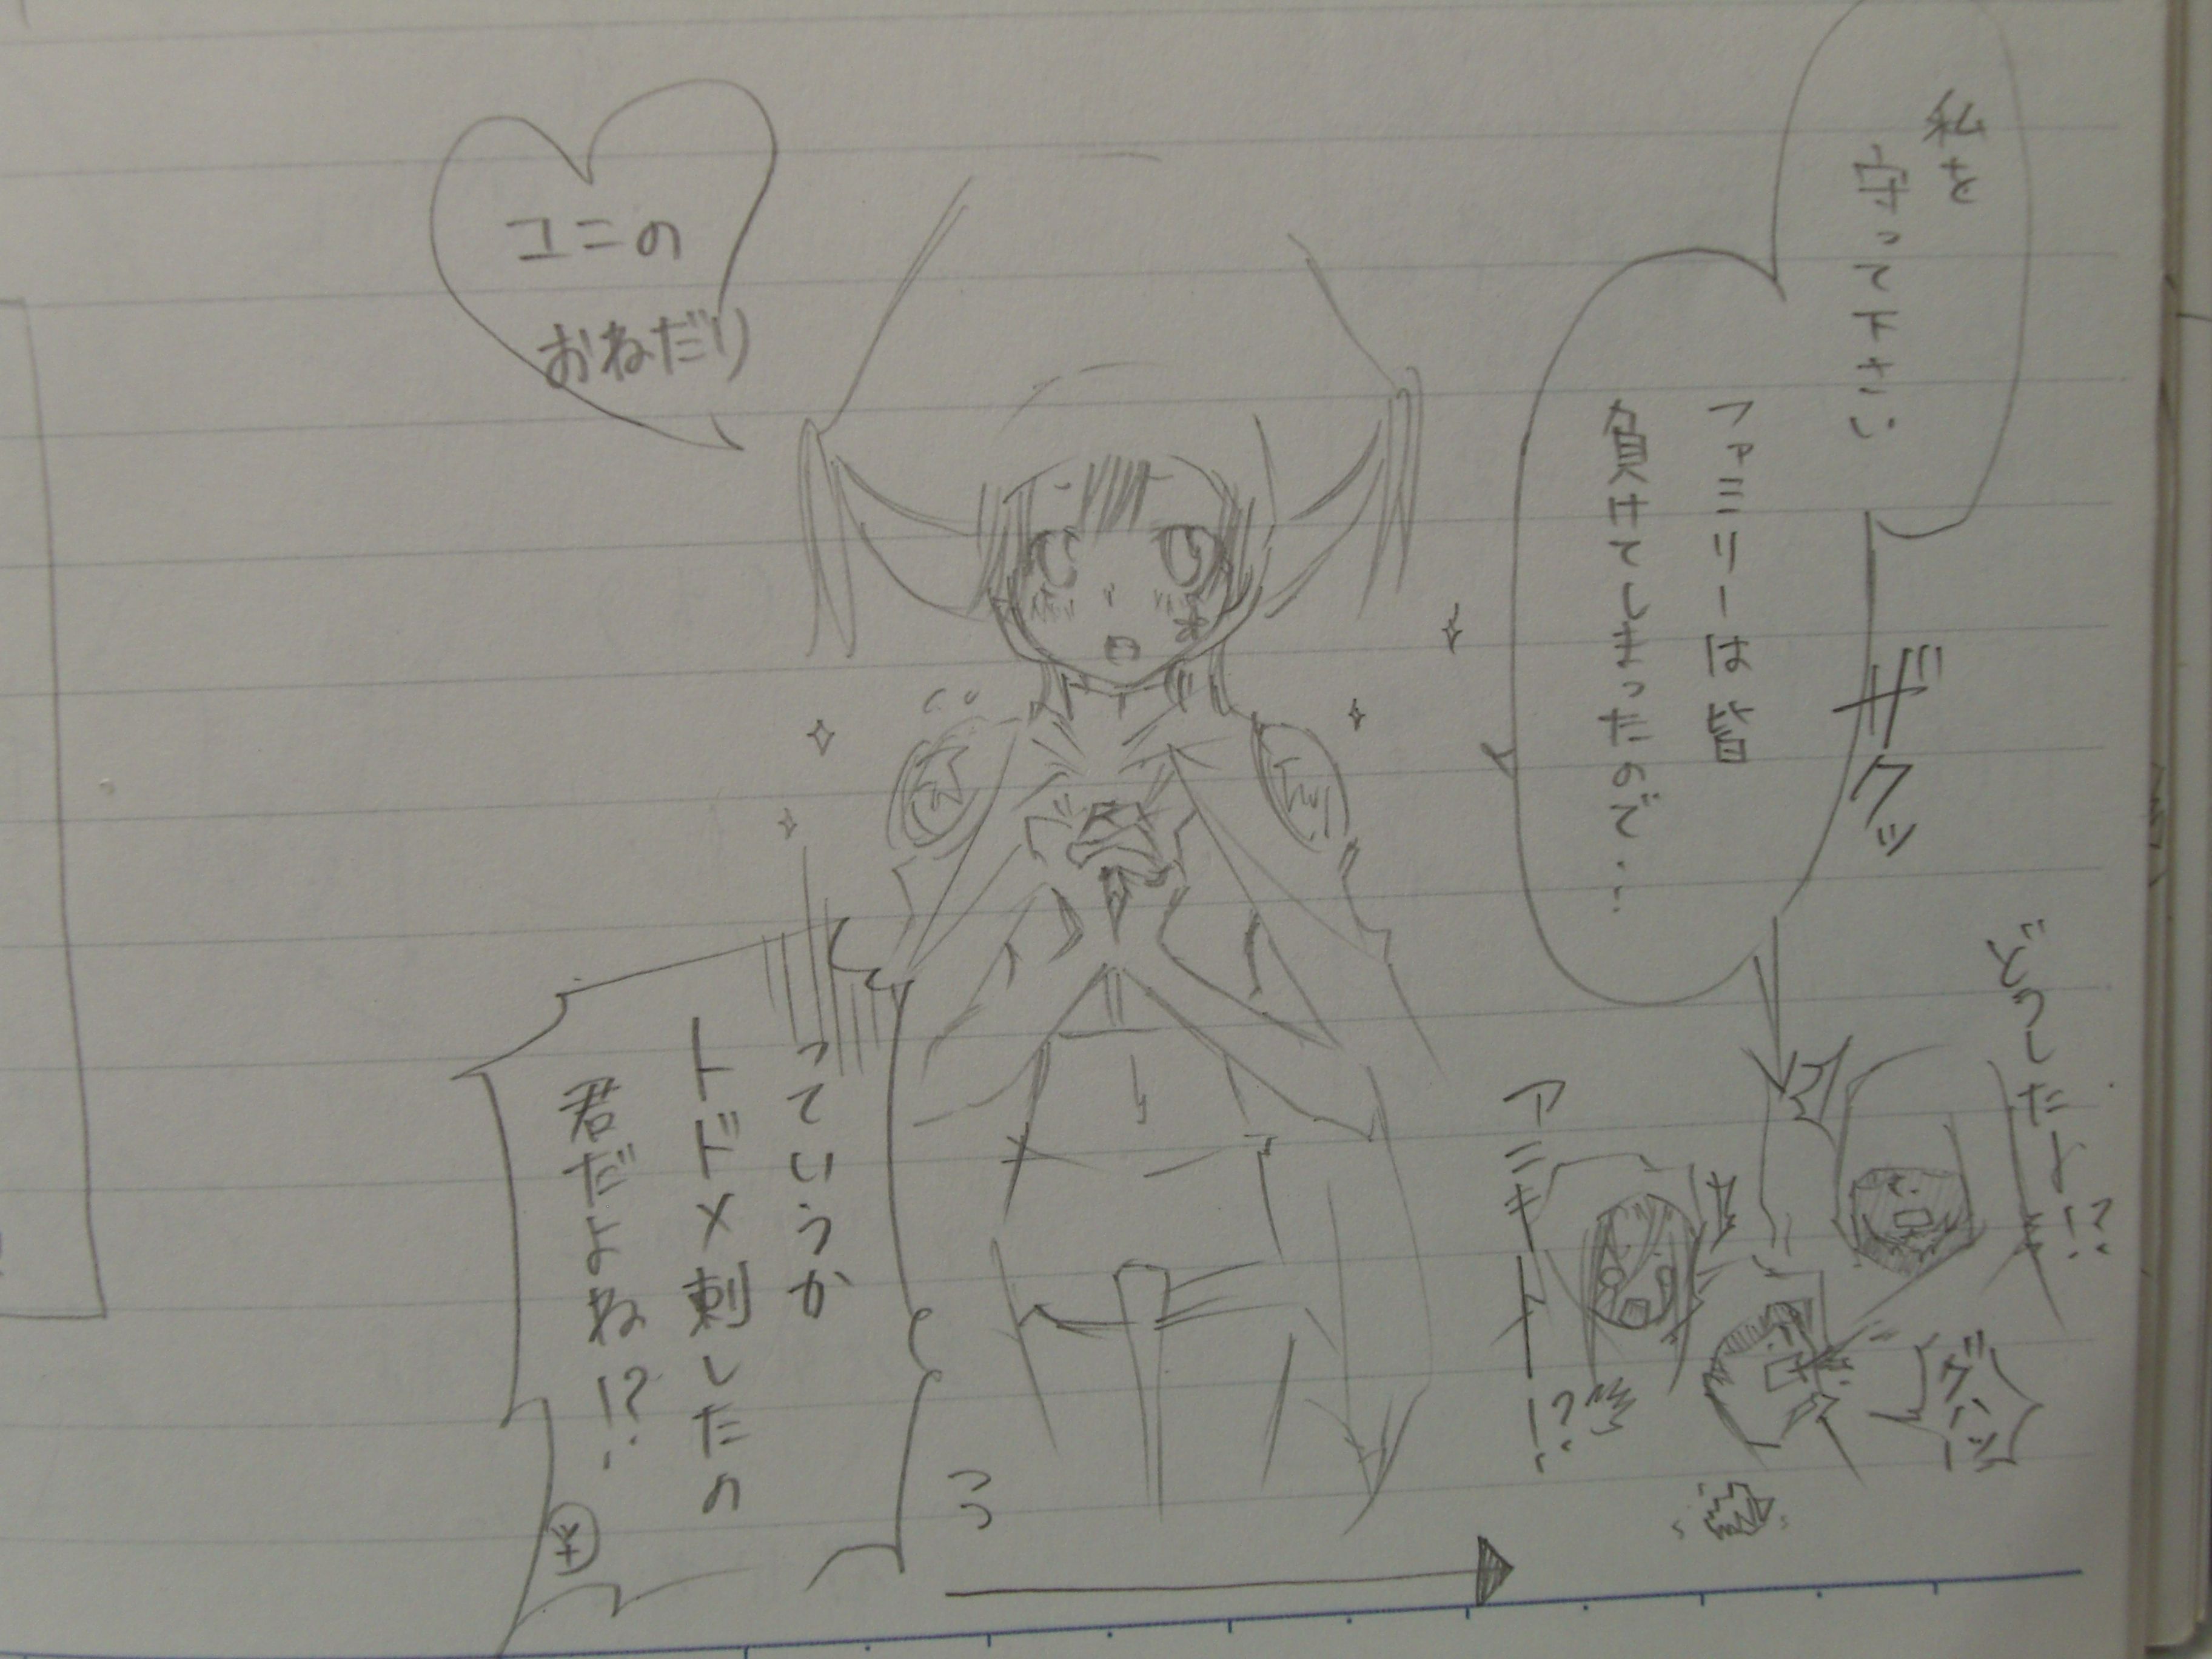 私を
守って下さい
ファミリーは皆
負けてしまったので…
ザクッ
どうしたよ!?
アニキーー!?
ユニの
おねだり
っていうか
トドメ刺したの
君だよね!?